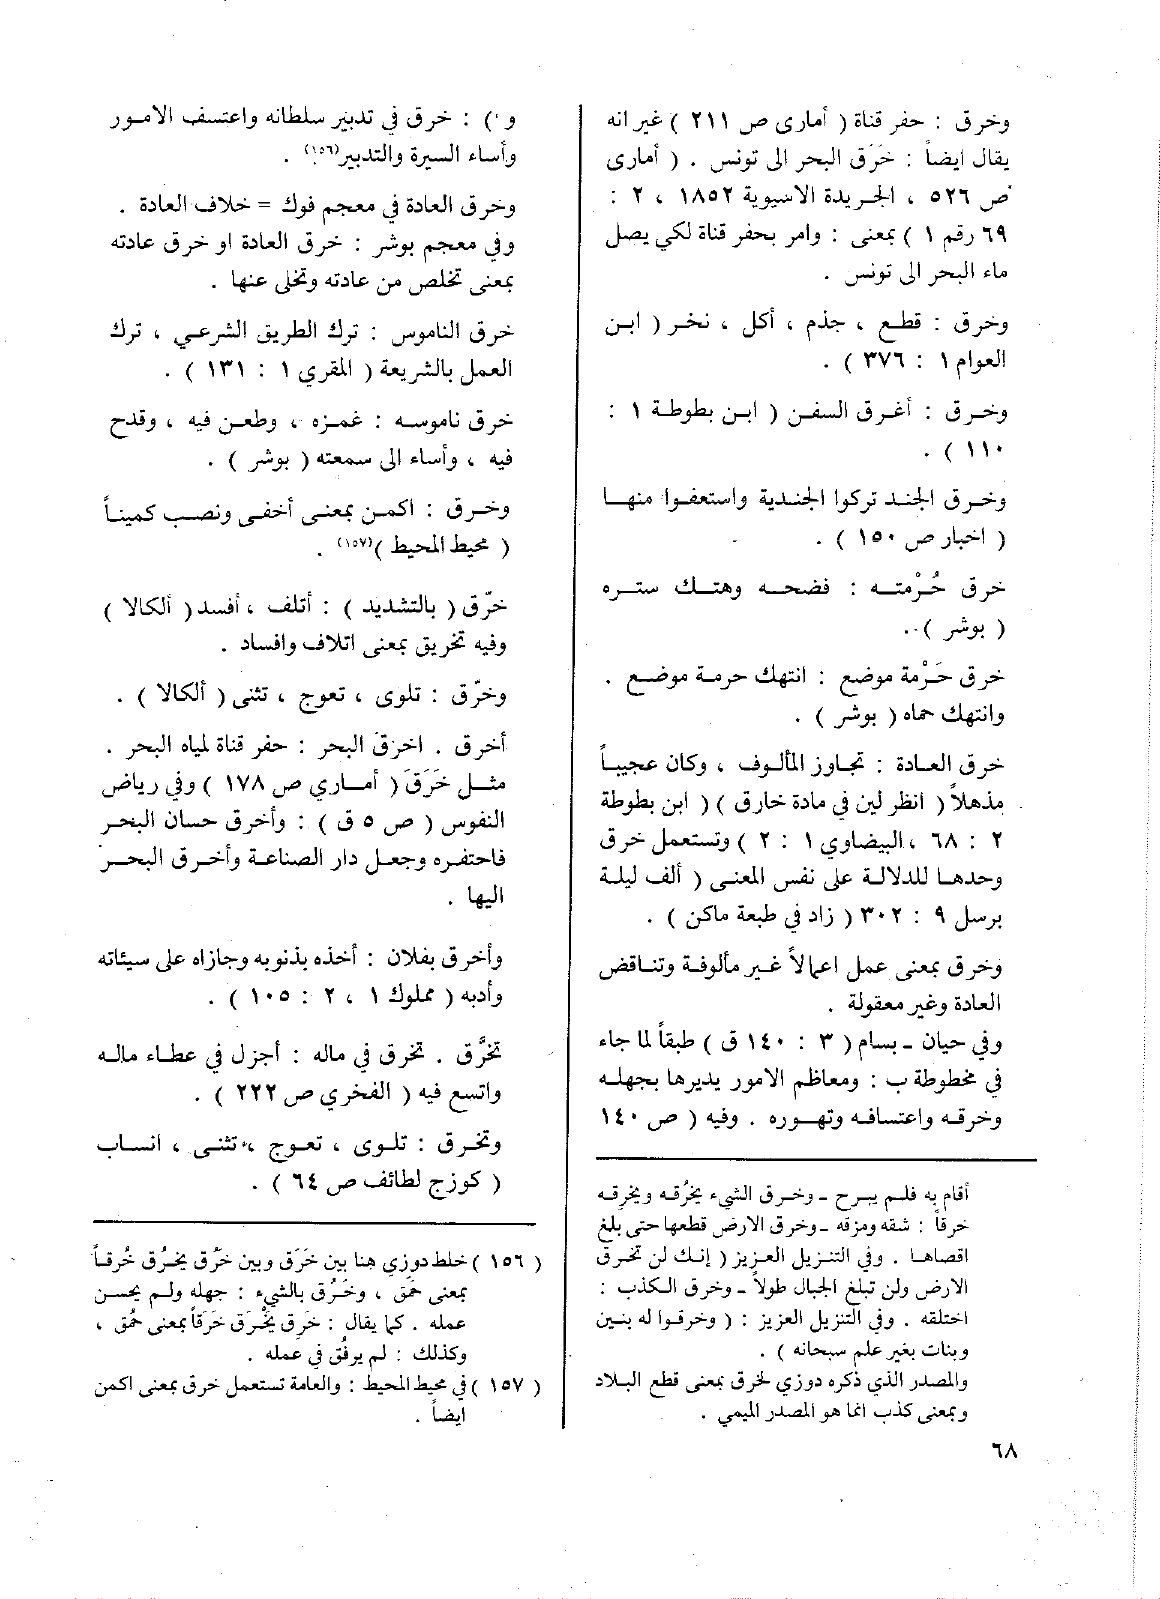 وخرق : حفر قناة ( أمارى ص ٢١١ ) غير انه
يقال ايضاً : خَرَق البحر الى تونس . ( أمارى
ص ٥٢٦ ، الجريدة الاسيوية ١٨٥٢ ، ٢ :
٦٩ رقم ١ ) بمعنى : وامر بحفر قناة لكي يصل
ماء البحر الى تونس .
وخرق : قطع ، جذم ، أكل ، نخر ( ابن
العوام ١ : ٣٧٦ ) .
وخرق : أغرق السفن ( ابن بطوطة ١ :
١١٠ ) .
وخرق الجند تركوا الجندية واستعفوا منها
( اخبار ص ١٥٠ ) .
خرق حُرْمته : فضحه وهتك ستره
( بوشر ) .
خرق حَرْمة موضع : انتهك حرمة موضع .
وانتهك حماه ( بوشر ) .
خرق العادة : تجاوز المألوف ، وكان عجيباً
مذهلاً ( انظر لين في مادة خارق ) ( ابن بطوطة
٢ : ٦٨ ، البيضاوي ١ : ٢ ) وتستعمل خرق
وحدها للدلالة على نفس المعنى ( ألف ليلة
برسل ٩ : ٣٠٢ ( زاد في طبعة ماكن ) .
وخرق بمعنى عمل اعمالاً غير مألوفة وتناقض
العادة وغير معقولة .
وفي حيان ـ بسام ( ٣ : ١٤٠ ق ) طبقاً لما جاء
في مخطوطة ب : ومعاظم الامور يديرها بجهله
وخرقه واعتسافه وتهوره . وفيه ( ص ١٤٠
أقام به فلم يبرح ـ وخرق الشيء يخرُقه ويخرِقه
خرقاً : شقه ومزقه ـ وخرق الارض قطعها حتى بلغ
اقصاها . وفي التنزيل العزيز ( إنك لن تخرق
الارض ولن تبلغ الجبال طولاً ـ وخرق الكذب :
اختلقه . وفي التنزيل العزيز : ( وخرقوا له بنين
وبنات بغير علم سبحانه ) .
والمصدر الذي ذكره دوزي لخرق بمعنى قطع البلاد
وبمعنى كذب انما هو المصدر الميمي .
٦٨
و ) : خرق في تدبير سلطانه واعتسف الامور
وأساء السيرة والتدبير(١٥٦) .
وخرق العادة في معجم فوك = خلاف العادة .
وفي معجم بوشر : خرق العادة او خرق عادته
بمعنى تخلص من عادته وتخلى عنها .
خرق الناموس : ترك الطريق الشرعي ، ترك
العمل بالشريعة ( المقري ١ : ١٣١ ) .
خرق ناموسه : غمزه ، وطعن فيه ، وقدح
فيه ، وأساء الى سمعته ( بوشر ) .
وخرق : اكمن بمعنى أخفى ونصب كميناً
( محيط المحيط )(١٥٧) .
خرّق ( بالتشديد ) : أتلف ، أفسد ( ألكالا )
وفيه تخريق بمعنى اتلاف وافساد .
وخرّق : تلوى ، تعوج ، تثنى ( ألكالا ) .
أخرق . اخرق البحر : حفر قناة لمياه البحر .
مثل خَرَقَ ( أماري ص ١٧٨ ) وفي رياض
النفوس ( ص ٥ ق ) : وأخرق حسان البحر
فاحتفره وجعل دار الصناعة وأخرق البحر
اليها .
وأخرق بفلان : أخذه بذنوبه وجازاه على سيئاته
وأدبه ( مملوك ١ ، ٢ : ١٠٥ ) .
تخرَّق . تخرق في ماله : أجزل في عطاء ماله
واتسع فيه ( الفخري ص ٢٢٢ ) .
وتخرق : تلوى ، تعوج ، تثنى ، انساب
( كوزج لطائف ص ٦٤ ) .
( ١٥٦ ) خلط دوزي هنا بين خَرَق وبين خرُق يخرُق خُرقاً
بمعنى حمق ، وخَرُق بالشيء : جهله ولم يحسن
عمله . كما يقال : خرِق يخْرَق خَرَقاً بمعنى حمُق ،
وكذلك : لم يرفُق في عمله .
( ١٥٧ ) في محيط المحيط : والعامة تستعمل خرق بمعنى اكمن
ايضاً .